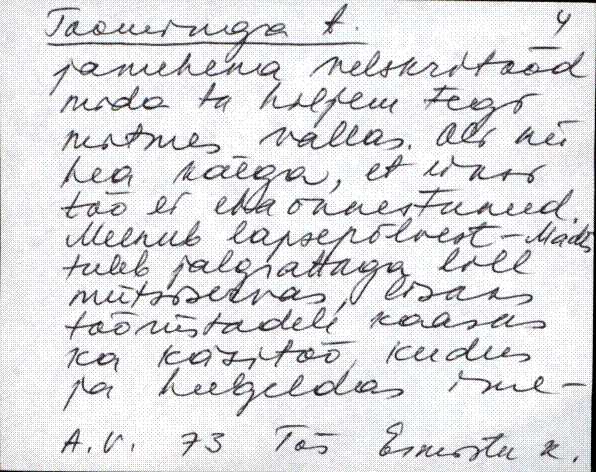 Toominga t. 4
jamehena velskritööd
mida ta hiljem tegi
mitmes vallas. Oli nii
hea käega, et ükski
töö ei ebaõnnestunud.
Meenub lapsepõlvest - Madis
tuleb jalgrattaga lill
mütsiservas, lisaks
tööriistadele kaasas
ka käsitöö, kudus
ja heegeldas ime-
A.V. 73 Tõs k.